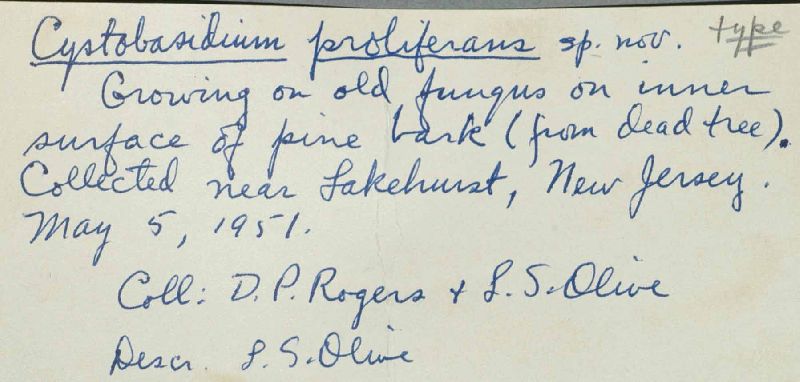 Cystobasidium proliferans sp. nov. type
Growing on old fungus on inner
surface of pine bark (from dead tree).
Collected near Lakehurst, New Jersey.
May 5, 1951.
Coll: D. P. Rogers + L. S. Olive
Descr. L. S. Olive